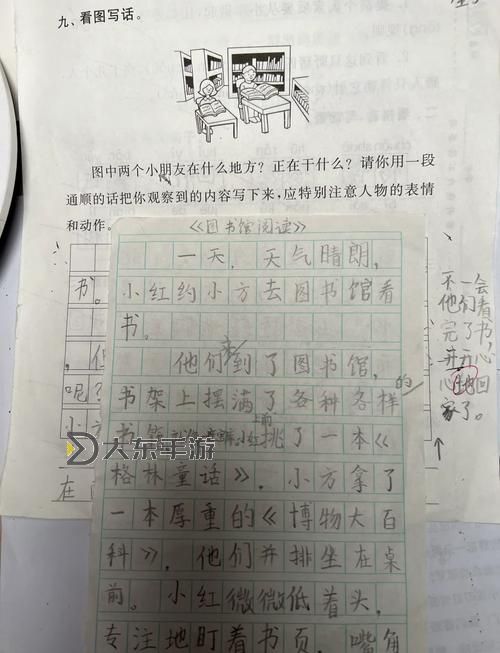 九、看图写话。
图中两个小朋友在什么地方？正在干什么？请你用一段
通顺的话把你观察到的内容写下来，应特别注意人物的表情
和动作。
《图书馆阅读》
一天，天气晴朗，
小红约小方去图书馆看
书。
他们来到了图书馆，
书架上摆满了各种各样的
书籍
小红上前挑了一本《
格林童话》，小方拿了
一本厚重的《博物大百
科》，他们并排坐在桌
前。小红微微低着头，
专注地盯着书页，嘴角
书。
呢？
小方
在
不一会
他们看
完了书，
开心
地回
家了。
大东手游